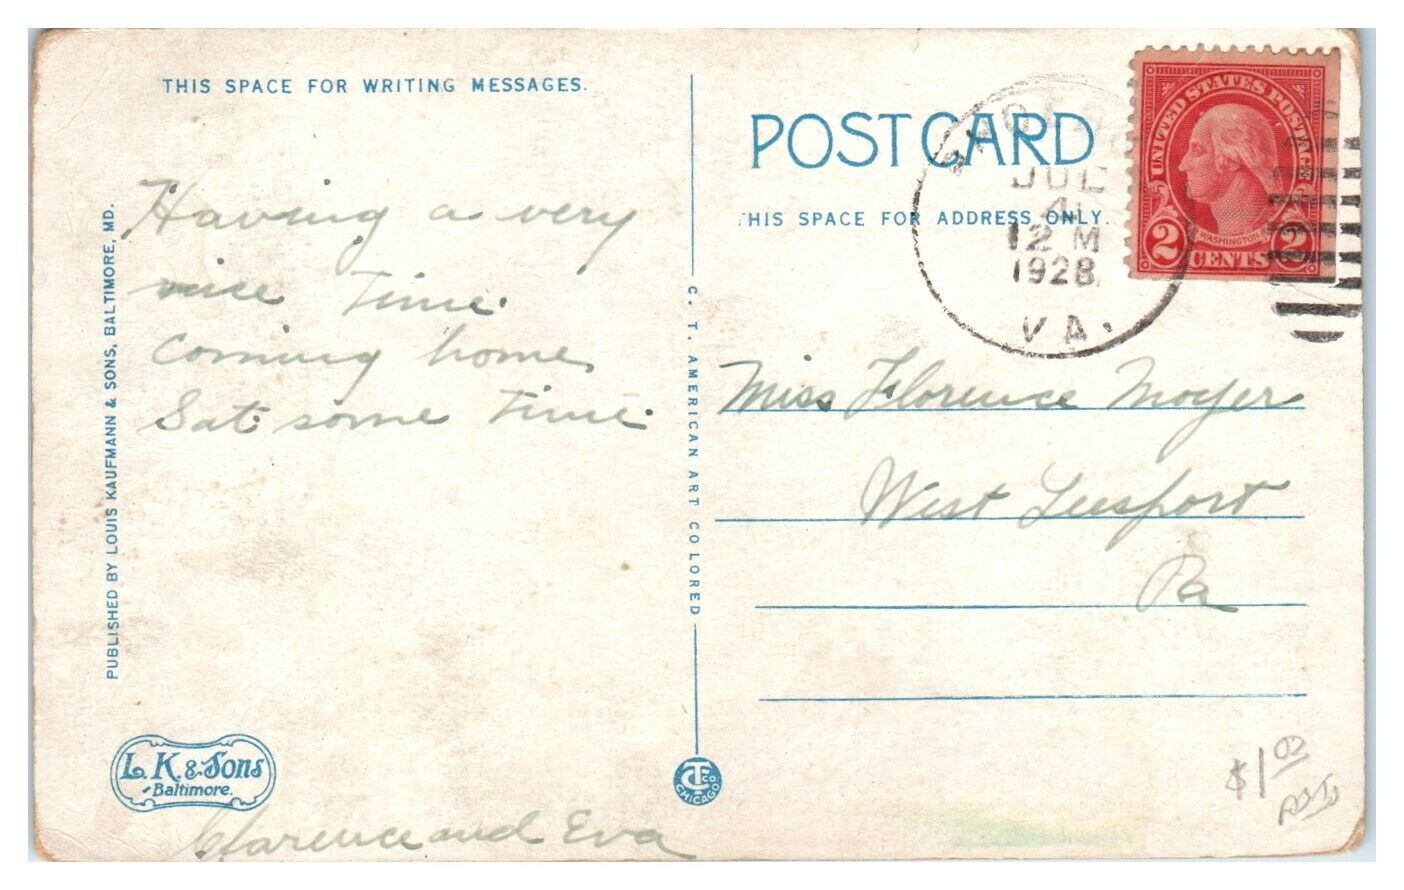 THIS SPACE FOR WRITING MESSAGES.
Having a very
nice time.
Coming home
Sat. some time.
Clarence and Eva
PUBLISHED BY LOUIS KAUFMANN & SONS, BALTIMORE, MD.
L. K. & Sons
Baltimore.
C. T. AMERICAN ART COLORED
CT CO. CHICAGO
POST CARD
HIS SPACE FOR ADDRESS ONLY.
JUL
4
12 M
1928
VA.
UNITED STATES POSTAGE
WASHINGTON
2 CENTS 2
Miss Florence Moyer
West Leesport
Pa
$1.02